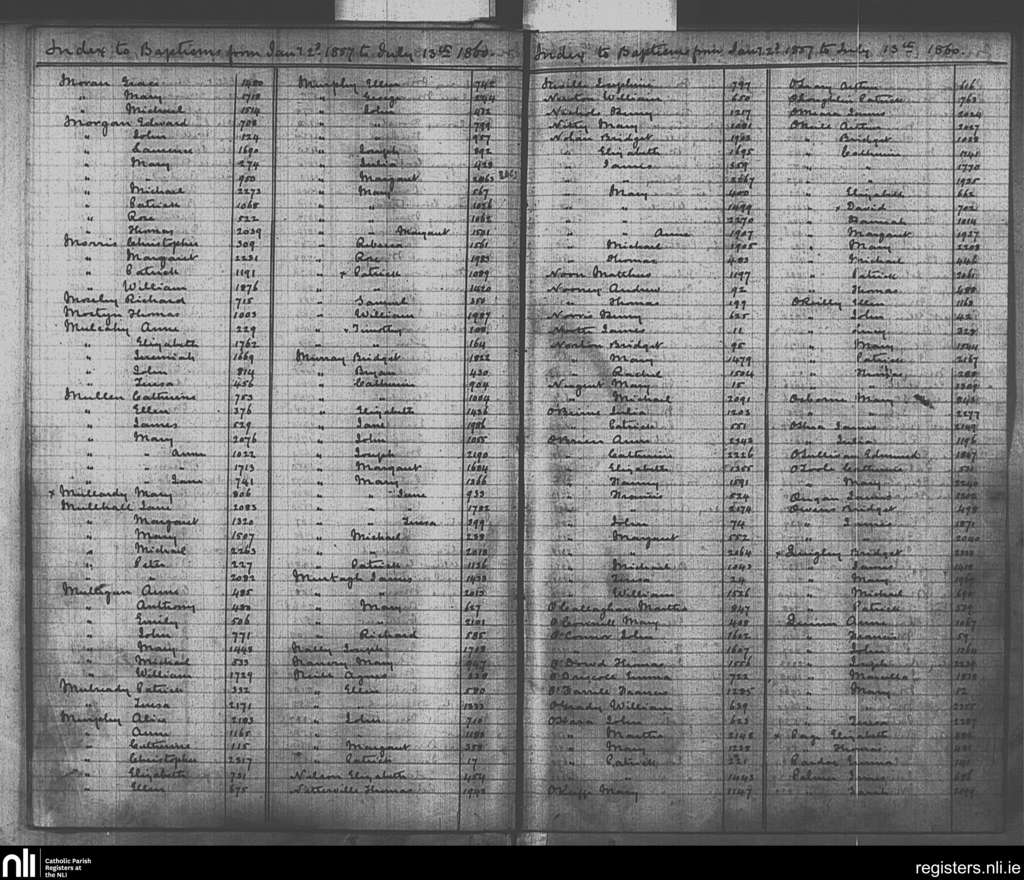 Index to Baptisms from Jany. 2d. 1857 to July 13th 1860.
Moran Grace 1480
" Mary 1718
" Michael 1514
Morgan Edward 708
" John 124
" Laurence 1690
" Mary 274
" " 950
" Michael 2273
" Patrick 1065
" Rose 522
" Thomas 2039
Morris Christopher 309
" Margaret 2231
" Patrick 1191
" William 1876
Richard 715
Mostyn Thomas 1003
Mulcahy Anne 229
" Elizabeth 1762
" Jeremiah 1669
" John 814
" Teresa 456
Mullen Catherine 753
" Ellen 376
" James 529
" Mary 2076
" " Anne 1022
" " 1713
" " Jane 741
x Mullardy Mary 806
Mullhall Jane 2083
" Margaret 1320
" Mary 1507
" Michael 2263
" Peter 227
" " 2082
Mulligan Anne 485
" Anthony 480
" Emily 506
" John 771
" Mary 1448
" Michael 533
" William 1729
Mulready Patrick 332
" Teresa 2171
Murphy Alice 2103
" Anne 1165
" Catherine 115
" Christopher 2317
" Elizabeth 731
" Ellen 675
Murphy Ellen 745
" George
" John 472
" " 799
" " 957
" Joseph 892
" Julia 428
" Margaret 2063
" Mary 567
" " 1026
" " 1062
" " Margaret 1501
" Rebecca 1561
" Rose 1983
" x Patrick 1089
" "
" Samuel 350
" William 1987
" x Timothy
" " 164
Murray Bridget 1022
" Bryan 430
" Catherine 904
" " 1004
" Elizabeth 1436
" Jane 1986
" John 1055
" Joseph 2190
" Margaret 1604
" Mary 1366
" " Jane 933
" " " 1782
" " Teresa 399
" Michael 238
" " 2018
" Patrick 1136
Murtagh James 1433
" " 2013
" Mary 627
" " 2101
" Richard 585
Nally Joseph 1712
Mary 947
Agnes
" Ellen 580
" " 1233
" John 710
" " 1182
" Margaret 358
" Patrick 17
Nelson Elizabeth 1454
Netterville Thomas 1942
Index to Baptisms from Jany. 2d. 1857 to July 13th 1860.
Neville Josephine 797
William 650
Henry 1217
Mary 1081
Nolan Bridget 1932
" Elizabeth 1695
" James 359
" " 2267
" Mary 400
" " 1499
" " 2270
" " Anne 1907
" Michael 1905
" Thomas 403
Noon Matthew 1197
Nooney Andrew 92
" Thomas 199
Norris Henry 625
North James 11
Norton Bridget 95
" Mary 1479
" Rachel 1504
Nugent Mary 15
" Michael 2091
O'Beirne Julia 1203
" Patrick 551
O'Brien Anne 2343
" Catherine 2226
" Elizabeth 1355
" Fanny 1591
" Francis 524
" " 2174
" John 74
" Margaret 552
" " 2064
" Michael 1043
" Teresa 24
" William 1526
O'Callaghan Martha 847
O'Connell Mary 408
O'Connor John 1602
" " 1607
O'Dowd Thomas 1556
O'Driscoll Emma 722
O'Farrell Frances 1235
O'Grady William 639
O'Hara John 623
" Martha 2145
" Mary 1225
" Patrick 221
" " 1443
O'Keeffe Mary 1147
O'Leary Arthur 616
O'Loughlin Patrick 1763
O'Meara James 2024
O'Neill Arthur 2027
" Bridget 1028
" Catherine 1241
" " 1770
" " 1925
" Elizabeth 662
" x David 702
" Hannah 1014
" Margaret 1927
" Mary 2203
" Michael 446
" Patrick 2061
" Thomas 480
O'Reilly Ellen 1162
" John 42
" Lucy
" Mary 1544
" Patrick 2167
" Thomas
" "
Osborne Mary
" " 2277
O'Shea James 2149
" Julia 1196
O'Sullivan Edmund 1807
O'Toole Catherine 531
" Mary 2240
James
Owens Bridget 498
" James 1871
" " 2040
x Quigley Bridget
" James 1412
" Mary 1969
" Michael 690
" Patrick 539
Quinn Anne 1067
" Francis 59
" John 1264
" Joseph 2239
" Marcella 1838
" Mary 12
" "
" Teresa 2287
x Page Elizabeth
" Thomas
Pardoe Emma 141
Palmer James 676
" Sarah
nli
Catholic Parish
Registers at
the NLI
registers.nli.ie